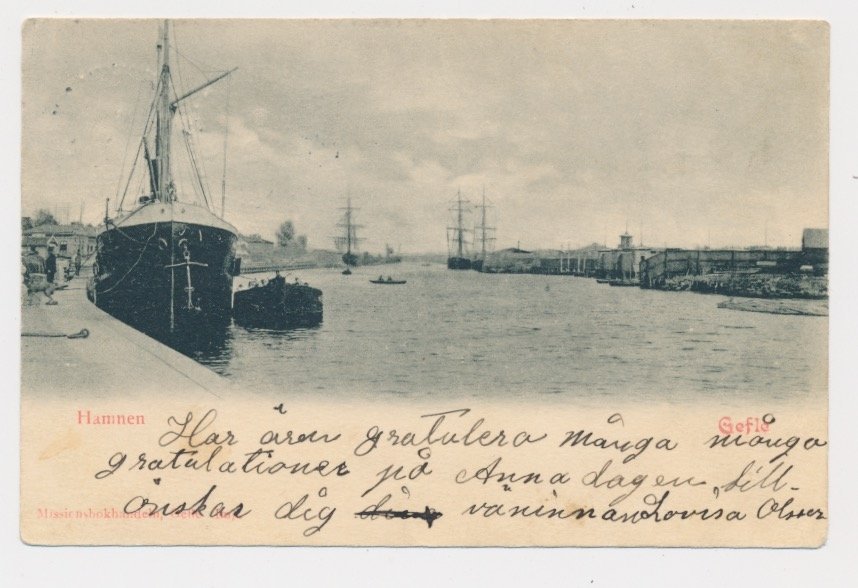 Hamnen
Gefle
Har ären gratulera många många
gratulationer på Anna dagen, till-
önskar dig väninnan Lovisa Olsser
Missionsbokhandeln, Gefle.